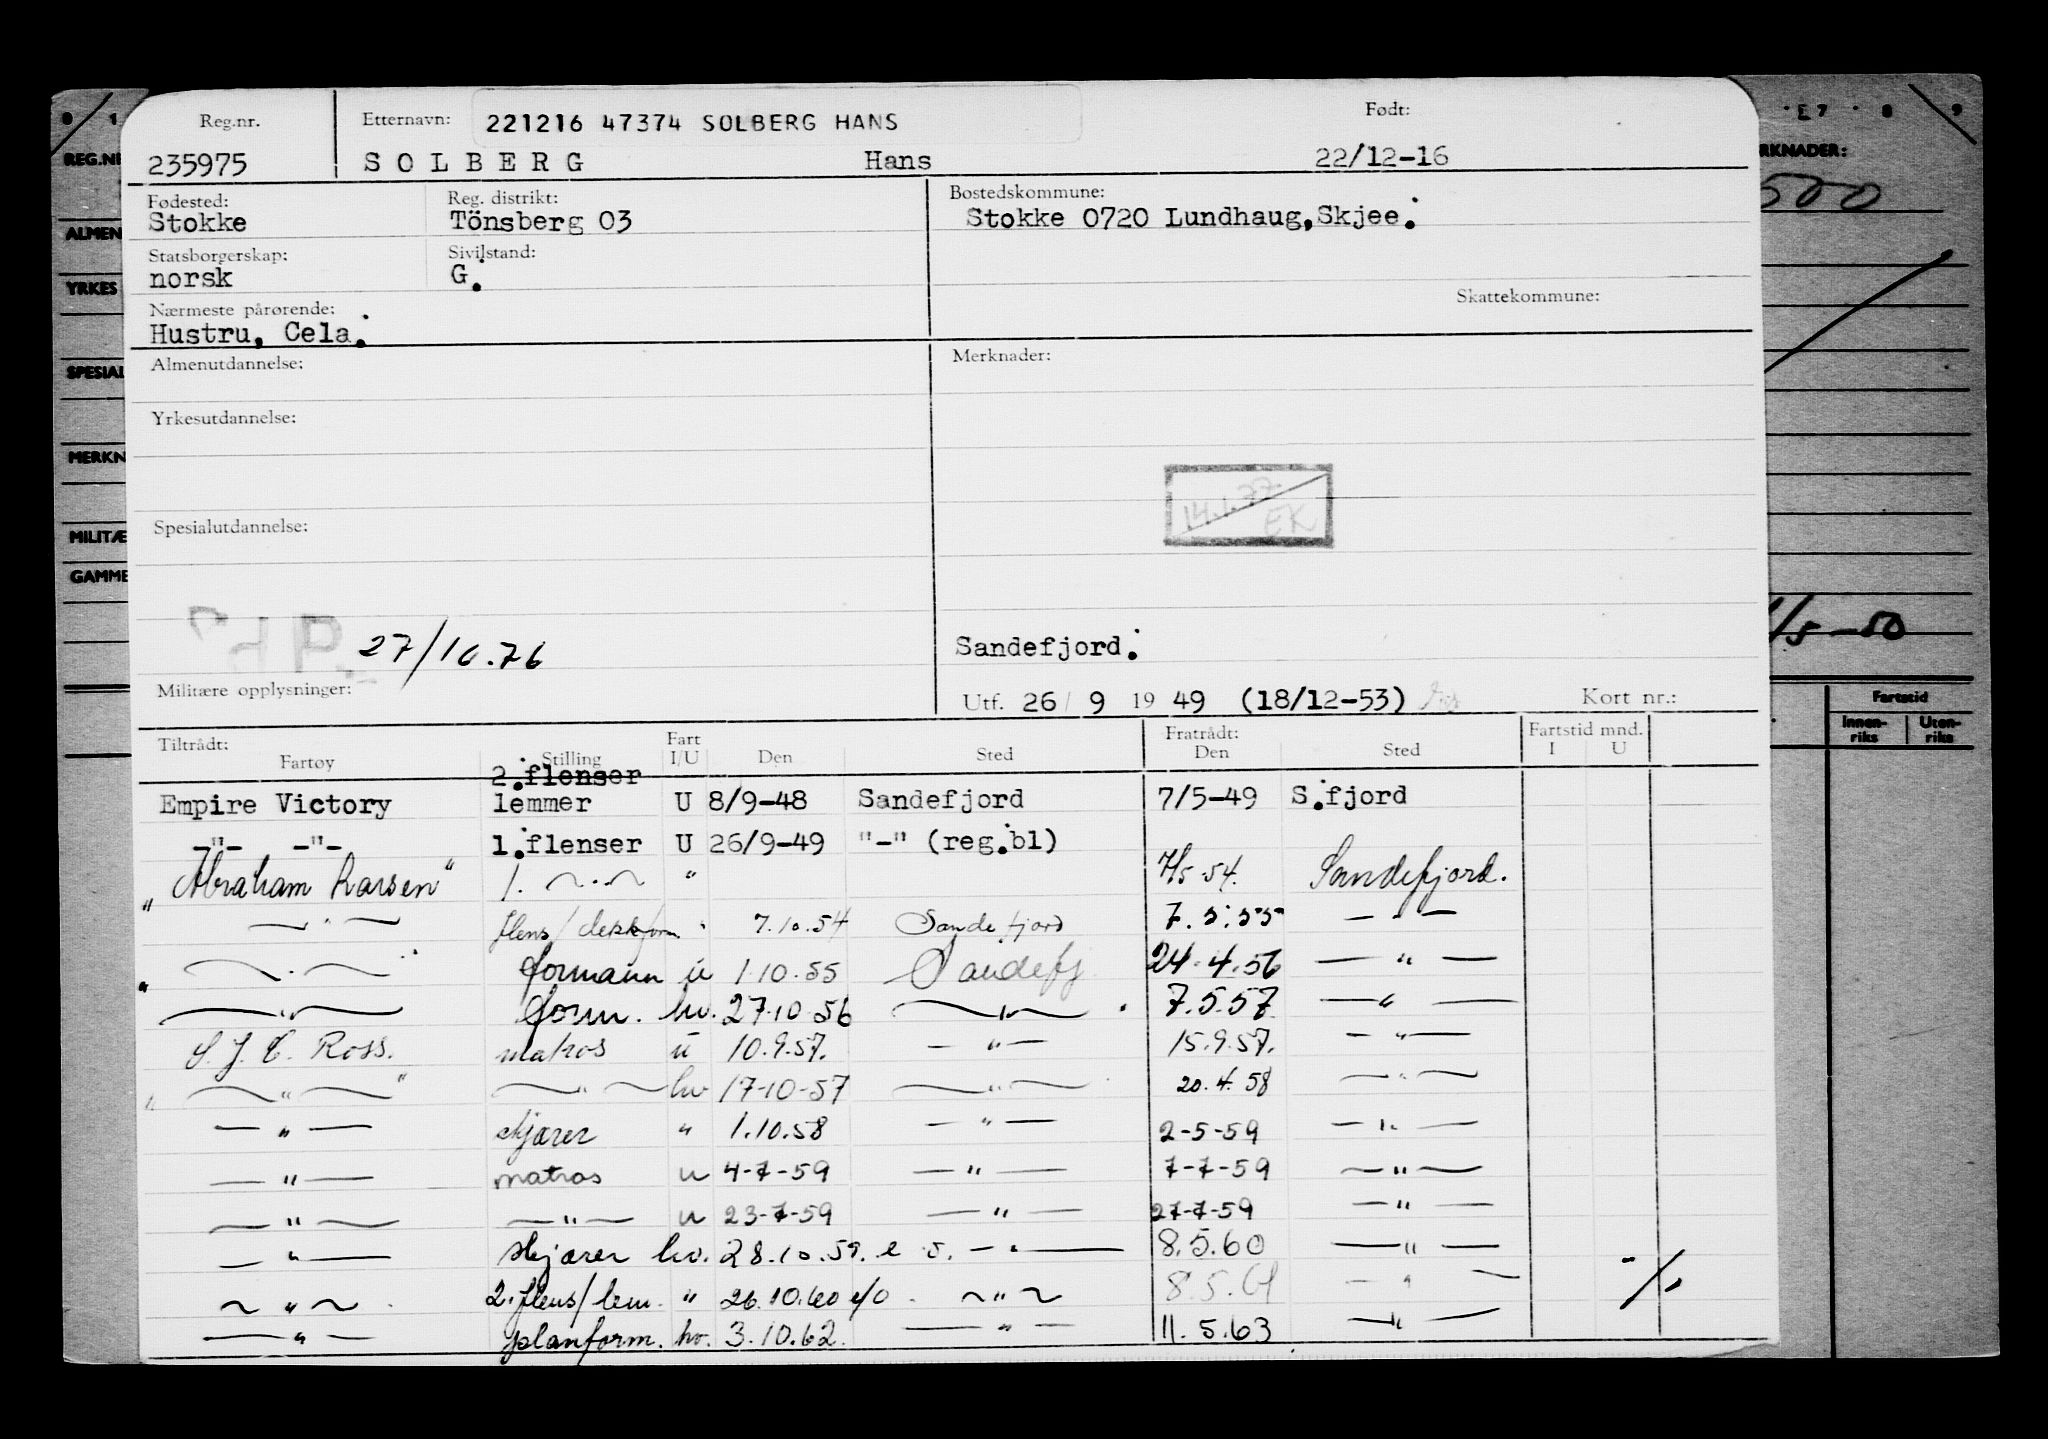 Reg.nr. Etternavn: 221216 47374 SOLBERG HANS Født:
235975 SOLBERG Hans 22/12-16
Fødested: Reg. distrikt: Bostedskommune:
Stokke Tönsberg 03 Stokke 0720 Lundhaug, Skjee.
Statsborgerskap: Sivilstand:
norsk G.
Nærmeste pårørende: Skattekommune:
Hustru, Cela.
Almenutdannelse: Merknader:
Yrkesutdannelse:
14.1.77
EK
Spesialutdannelse:
27/10.76 Sandefjord.
Militære opplysninger: Utf. 26/ 9 19 49 (18/12-53) Kort nr.:
Tiltrådt: Fart Fratrådt: Fartstid mnd.
Fartøy Stilling I/U Den Sted Den Sted I U
2.flenser
Empire Victory lemmer U 8/9-48 Sandefjord 7/5-49 S.fjord
-"- -"- 1.flenser U 26/9-49 "-" (reg.bl)
"Abraham Larsen" 1. ~.~ " 7/5-54. Sandefjord.
— " — flens/dekkform " 7.10.54 Sandefjord 7.5.55 — " —
— " — formann u 1.10.55 Sandefj 24.4.56 — " —
— " — form. hv. 27.10.56 — " — 7.5.57 — " —
S. J. C. Ross. matros u 10.9.57. — " — 15.9.57. — " —
— " — — " — hv 17-10-57 — " — 20.4.58 — " —
— " — skjærer " 1.10.58 — " — 2-5-59 — " —
— " — matros u 4-7-59 — " — 7-7-59 — " —
— " — — " — u 23-7-59 — " — 27-7-59 — " —
— " — skjærer hv. 28.10.59. — " — 8.5.60 — " —
— " — 2.flens/lem. " 26.10.60 — " — 8.5.61 — " —
— " — planform. hv. 3.10.62. — " — 11.5.63 — " —
REG.NR
ALMEN
YRKES
SPESIAL
MERKN
MILITÆ
GAMME
RKNADER:
500
/5-50
Fartstid
Innen-
riks
Uten-
riks